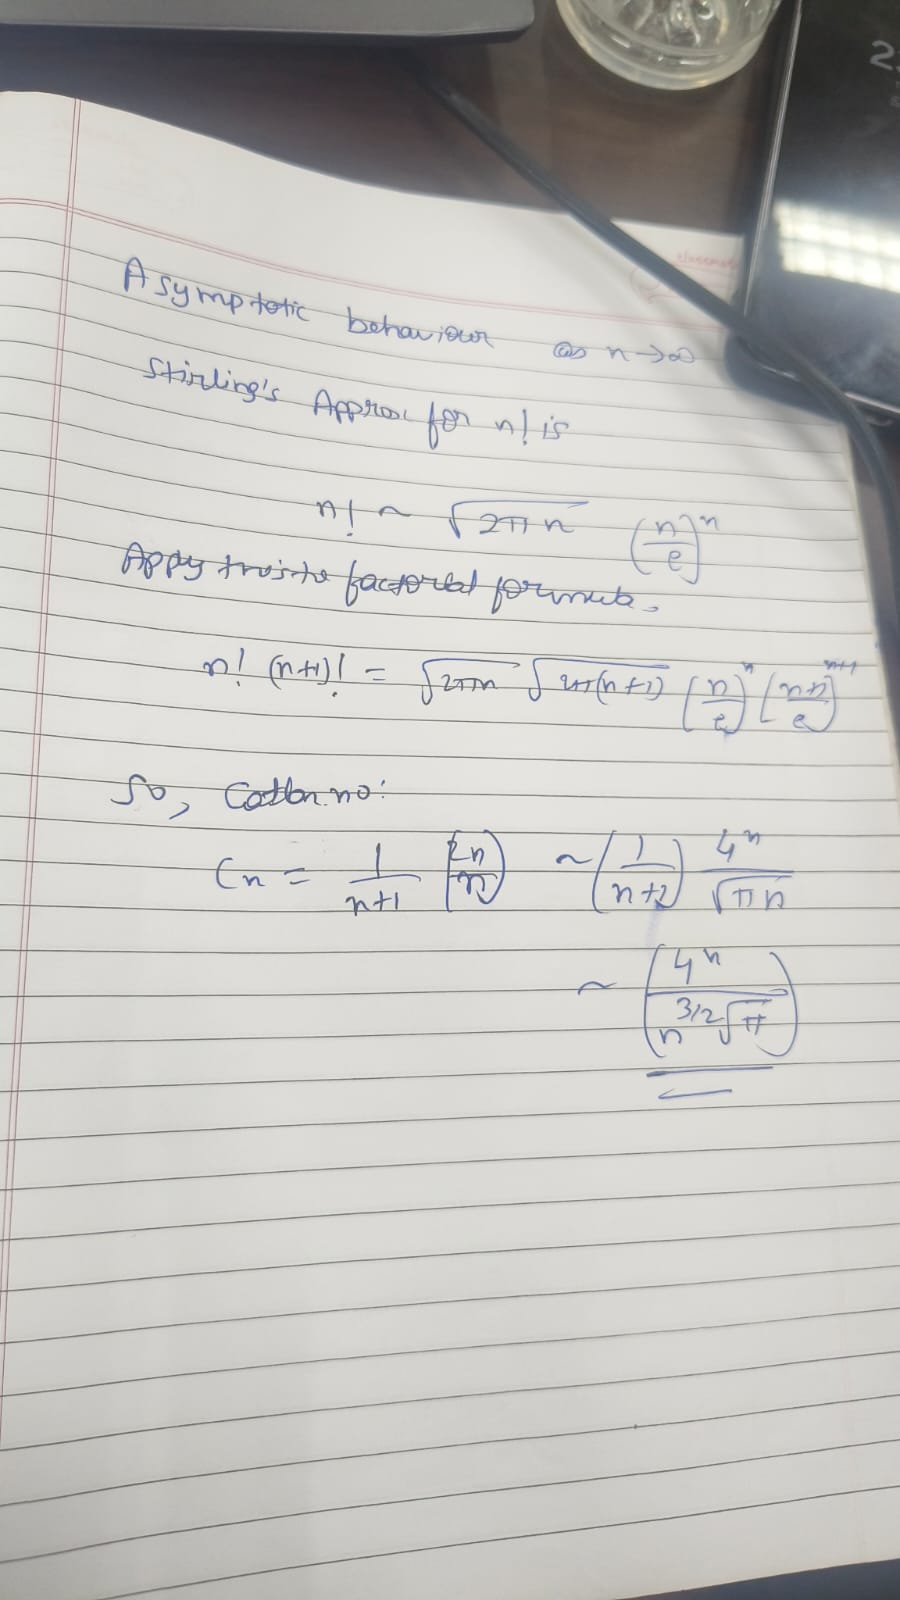 Asymptotic behaviour as n→∞
Stirling's Approx for n! is
n! ~ √2πn (n/e)^n
Appy this to factorial formula.
n! (n+1)! = √2πn √2π(n+1) (n/e)^n (n+1/e)^n+1
So, Catlan no:
Cn = 1/n+1 (2n/n) ~ (1/n+1) 4^n/√πn
~ (4^n/n^3/2√π)